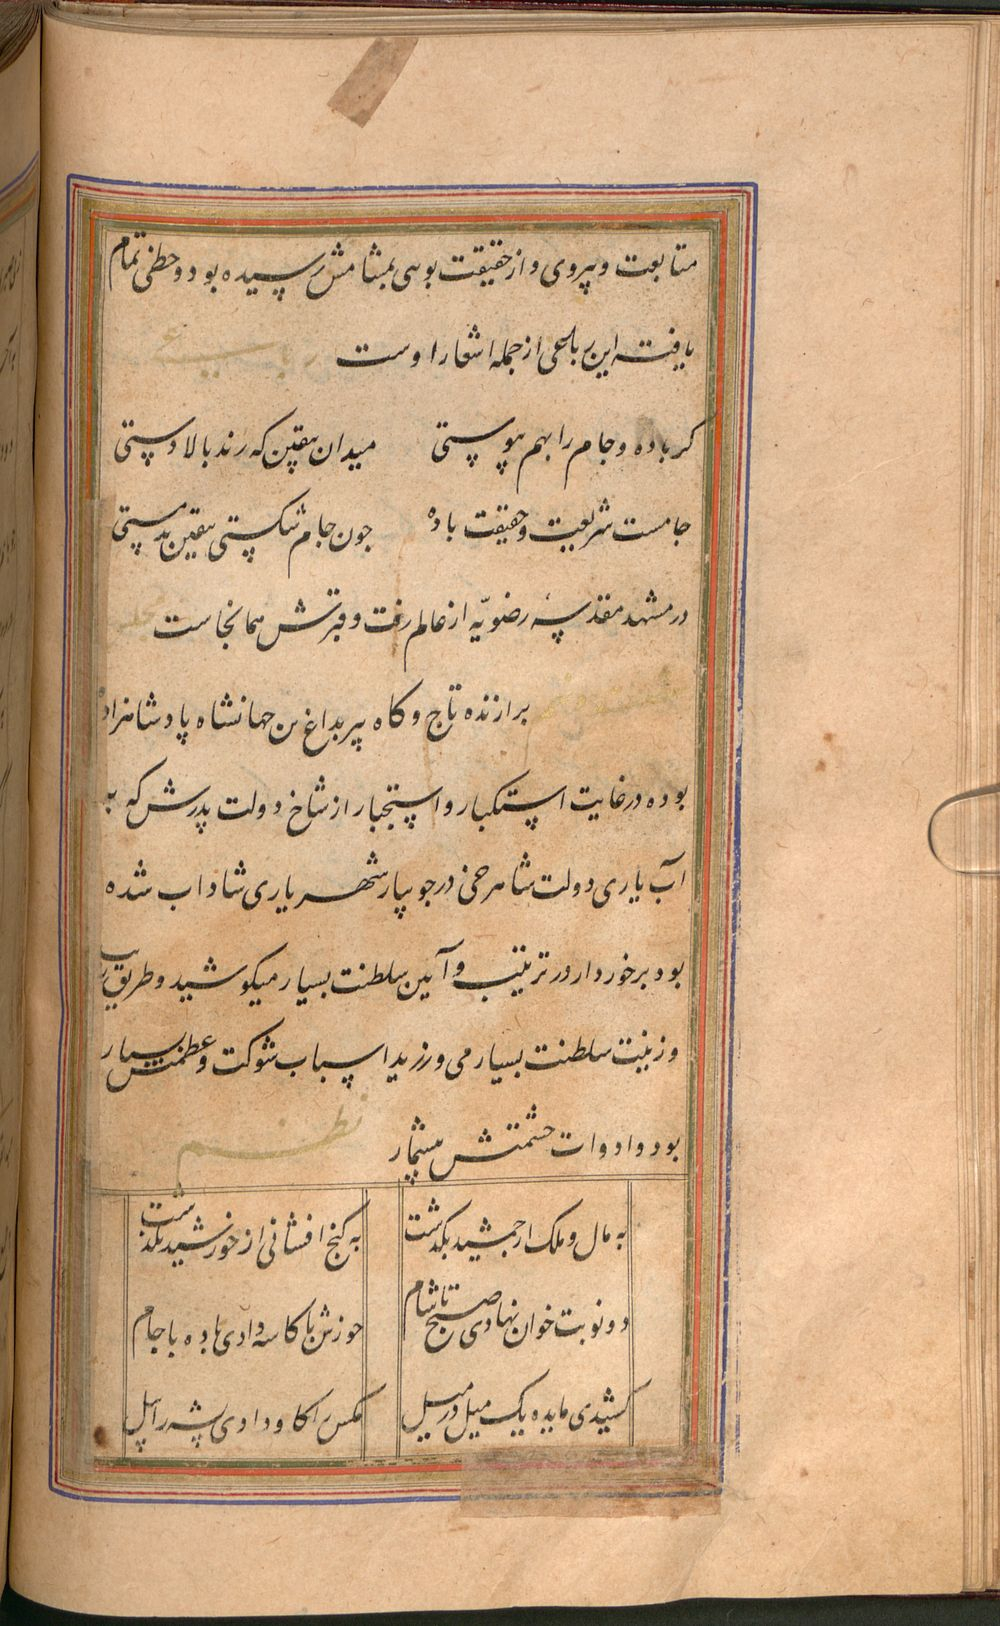 متابعت و پیروی و از حقیقت بوسی بمشامش رسیده بود و حظی تمام
یافته این رباعی از جمله اشعار اوست رباعی
کر باده و جام را بهم پیوستی میدان بیقین که رند بالا دستی
جامست شریعت و حقیقت باده جون جام شکستی بیقین بدمستی
در مشهد مقدسه رضویّه از عالم رفت و قبرش همانجاست
برازنده تاج و کاه پیر بداغ بن جهانشاه پادشاهزاده
بوده در غایت استکبار و استجبار از شاخ دولت پدرش که به
آب یاری دولت شاهرخی در جویبار شهریاری شاداب شده
بود برخوردار در ترتیب و آیین سلطنت بسیار میکوشید و طریق
و زینت سلطنت بسیار می ورزید اسباب شوکت و عظمتش بسیار
بود و ادوات حشمتش بیشمار نظم
به مال و ملک از جمشید بکذشت به کنج افشانی از خورشید بکذشت
دو نوبت خوان نهادی صبح تا شام خورش با کاسه دادی باده با جام
کشیدی مایده یک میل در میل مکس را کاو دادی پشه را پیل